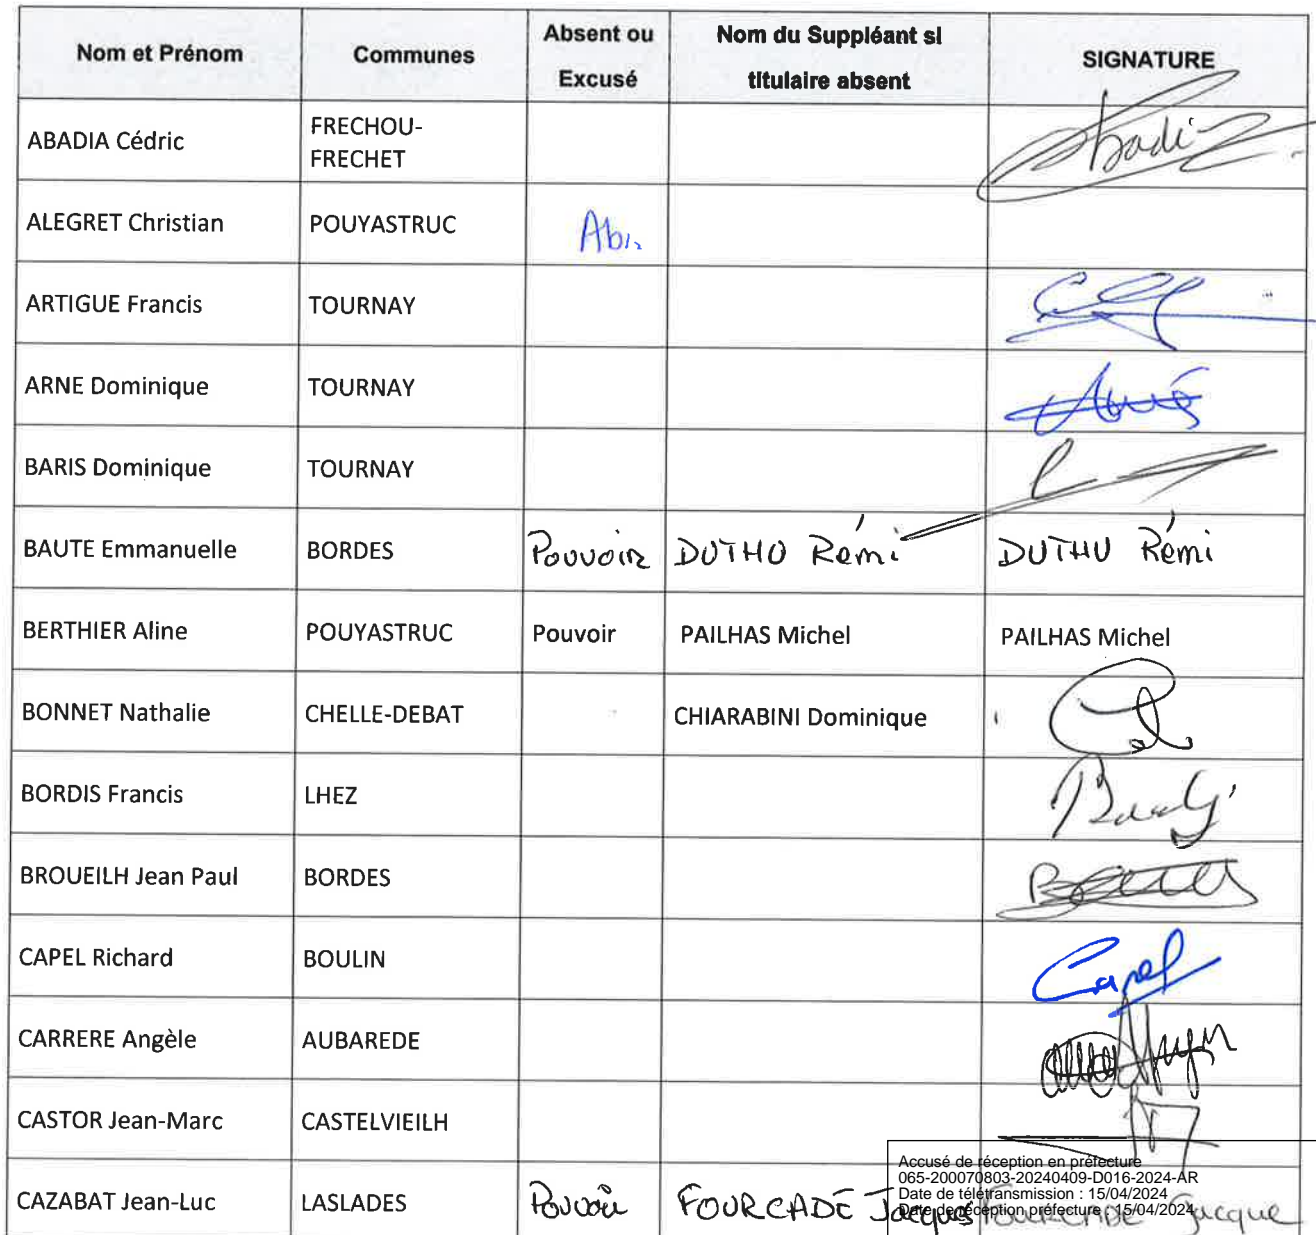 Nom et Prénom Communes Absent ou Excusé Nom du Suppléant si titulaire absent SIGNATURE
ABADIA Cédric FRECHOU-FRECHET Abadie
ALEGRET Christian POUYASTRUC Abs
ARTIGUE Francis TOURNAY
ARNE Dominique TOURNAY Arné
BARIS Dominique TOURNAY
BAUTE Emmanuelle BORDES Pouvoir DUTHU Rémi DUTHU Rémi
BERTHIER Aline POUYASTRUC Pouvoir PAILHAS Michel PAILHAS Michel
BONNET Nathalie CHELLE-DEBAT CHIARABINI Dominique
BORDIS Francis LHEZ
BROUEILH Jean Paul BORDES
CAPEL Richard BOULIN Capel
CARRERE Angèle AUBAREDE
CASTOR Jean-Marc CASTELVIEILH
CAZABAT Jean-Luc LASLADES Pouvoir FOURCADE Jacques FOURCADE Jacque
Accusé de réception en préfecture
065-200070803-20240409-D016-2024-AR
Date de télétransmission : 15/04/2024
Date de réception préfecture : 15/04/2024